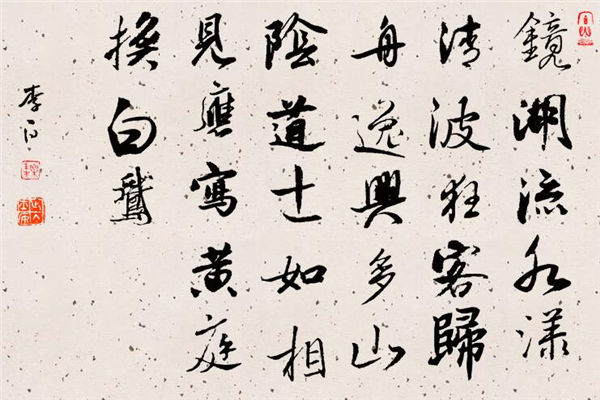 鏡湖流水漾
清波狂客歸
舟逸興多山
陰道士如相
見應寫黃庭
換白鵞
李白